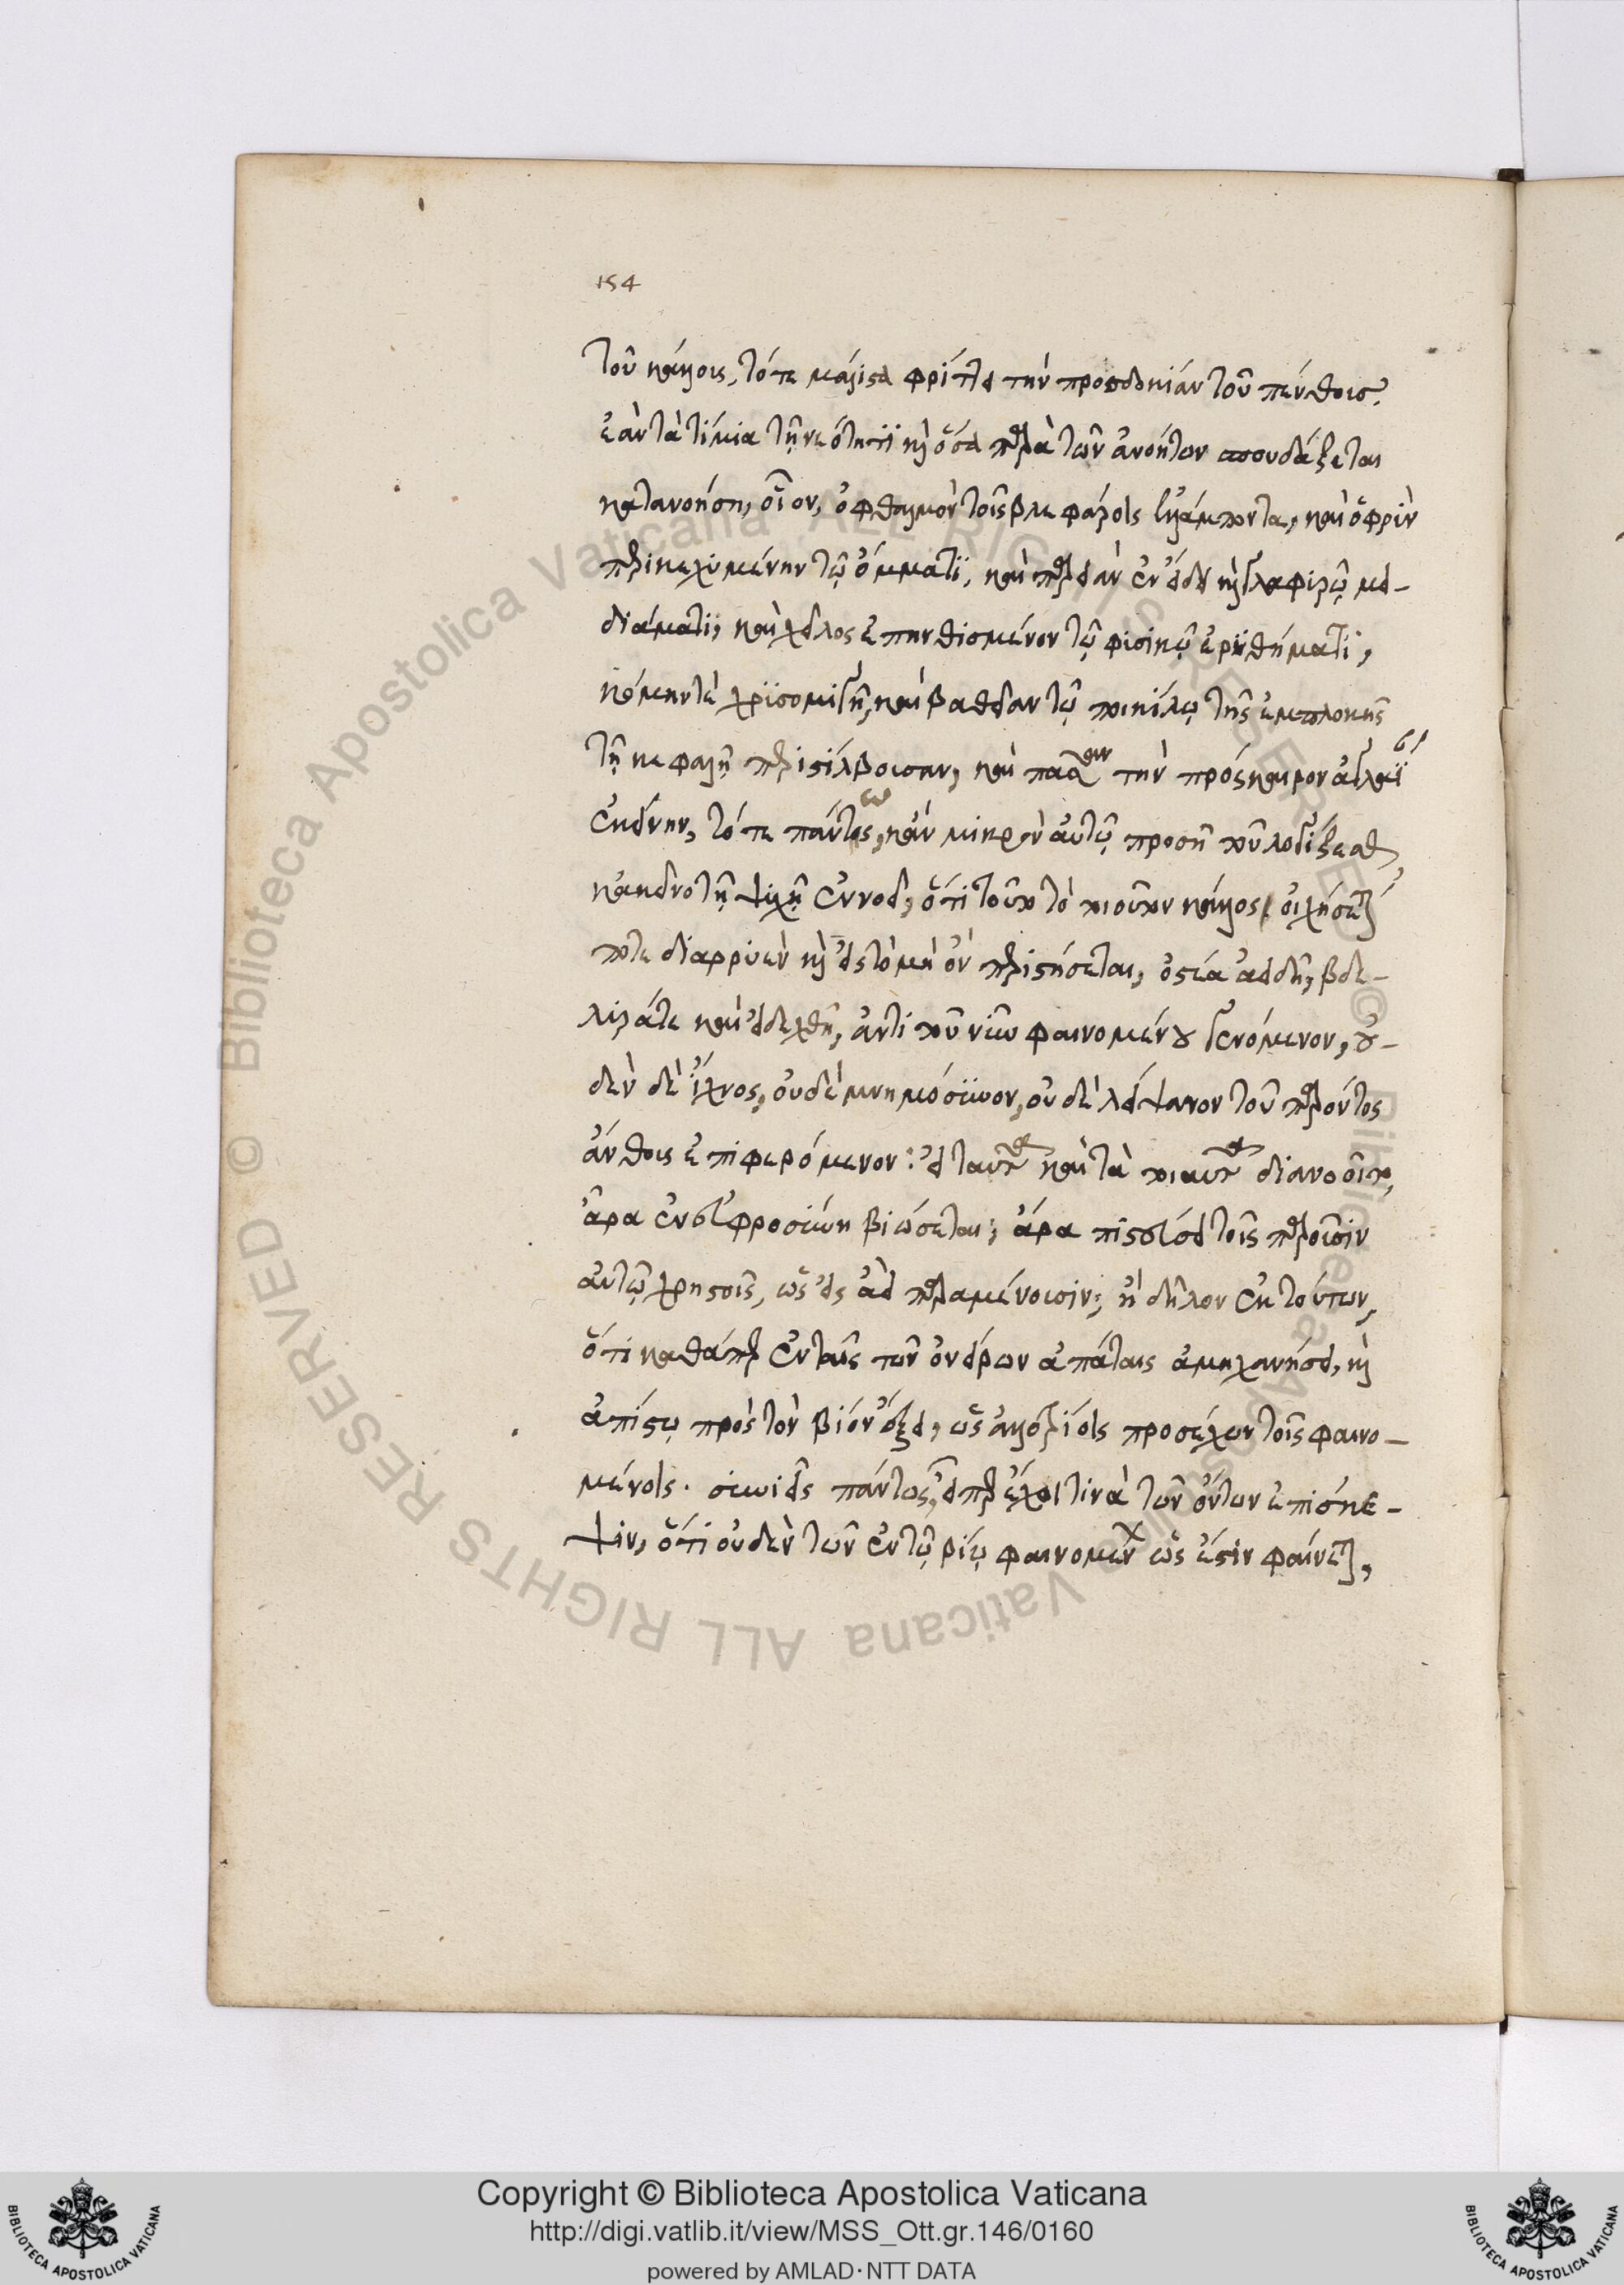 154
τοῦ κάλλους, τότε μάλιστα φρίττει τὴν προσδοκίαν τοῦ πένθους.
ἐὰν τὰ τίμια τῇ νεότητϊ κ̀ ὅσα παρὰ τῶν ἀνοήτων σπουδάζεται
κατανοήσῃ, οἷον, ὀφθαλμὸν τοῖς βλεφάροις λάμποντα, καὶ ὀφρὺν
περικεχυμένην τῷ ὄμματϊ, καὶ παρειὰν ἐν εἴδει κ̀ γλαφυρῷ μει-
διάματι, καὶ χεῖλος ἐπηνθισμένον τῷ φυσικῷ ἐρϋθήματϊ,
κόμην τὲ χρϋσομιγῆ, καὶ βαθεῖαν τῷ ποικίλῳ τῆς ἐμπλοκῆς
τῇ κεφαλῇ περιστίλβουσαν, καὶ πᾶσαν τὴν πρόσκαιρον ἀγλαΐαν
ἐκείνην, τότε πάντως, κἂν μικρὸν αὐτῷ προσῇ τοῦ λογίζεσθαι,
κἀκεῖνο τῇ ψυχῇ ἐννοεῖ, ὅτι τοῦτο τὸ τοιοῦτον κάλλος οἰχήσεταί
ποτε διαρρυὲν κ̀ εἰς τὸ μὴ ὂν περιστήσεται, ὀστέα ἀειδῆ, βδε-
λυρά τε καὶ εἰδεχθῆ, ἀντὶ τοῦ νῦν φαινομένου γενόμενον, οὐ-
δὲν δὲ ἴχνος, οὐδὲ μνημόσϋνον, οὐδὲ λείψανον τοῦ παρόντος
ἄνθους ἐπιφερόμενον: εἰ ταῦτα καὶ τὰ τοιαῦτα διανοοῖτο,
ἆρα ἐν εὐφροσύνῃ βιώσεται; ἆρα πιστεύσει τοῖς παροῦσιν
αὐτῷ χρηστοῖς, ὡς εἰς ἀεὶ παραμένουσιν; ἢ δῆλον ἐκ τούτων,
ὅτι καθάπερ ἐν ταῖς τῶν ὀνείρων ἀπάταις ἀμηχανήσει, κ̀
ἀπίστῳ πρὸς τὸν βίον ἕξει, ὡς ἀλλοτρίοις προσέχων τοῖς φαινο-
μένοις. συνιεῖς πάντως, εἴπερ ἔχοι τινὰ τῶν ὄντων ἐπίσκε-
ψιν, ὅτι οὐδὲν τῶν ἐν τῷ βίῳ φαινομένων ὡς ἔστιν φαίνεται,
Copyright © Biblioteca Apostolica Vaticana
http://digi.vatlib.it/view/MSS_Ott.gr.146/0160
powered by AMLAD·NTT DATA